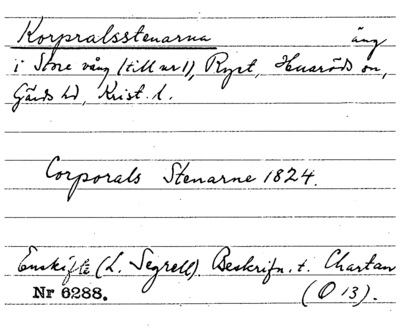 Korpralsstenarna äng
i Store vång (till nr 1), Ryet, Huaröds sn,
Gärds hd, Krist. l.
Corporals Stenarne 1824.
Enskifte (L. Segrell). Beskrifn. t. Chartan
Nr 6288. (O 13).